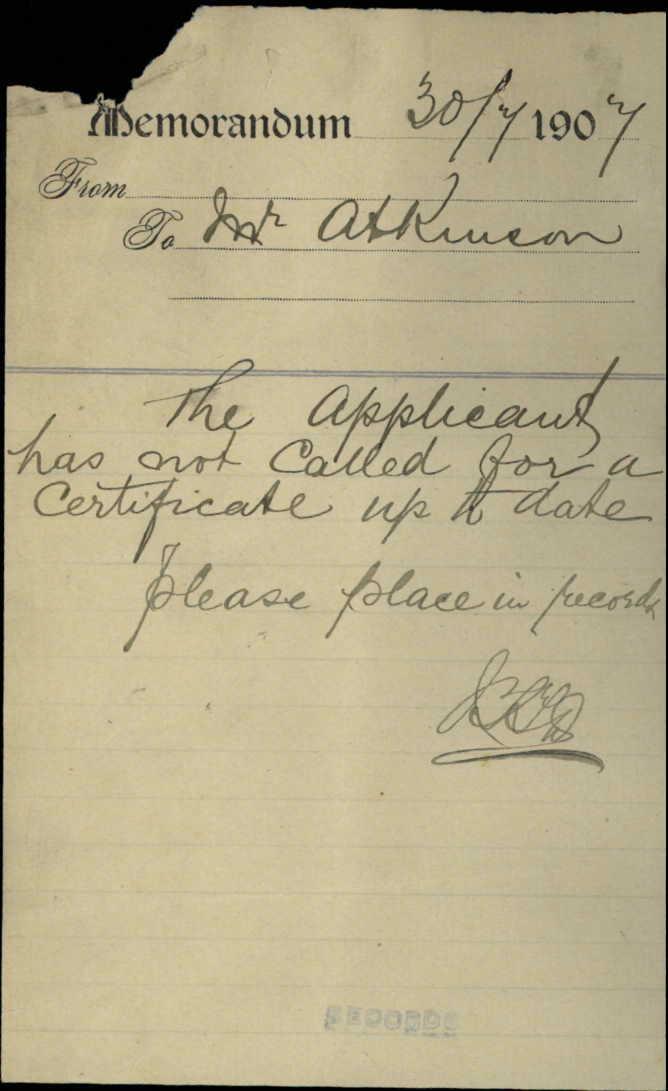 Memorandum 30/7 1907
From
To Mr Atkinson
The applicant
has not called for a
Certificate up to date
please place in records
RECORDS